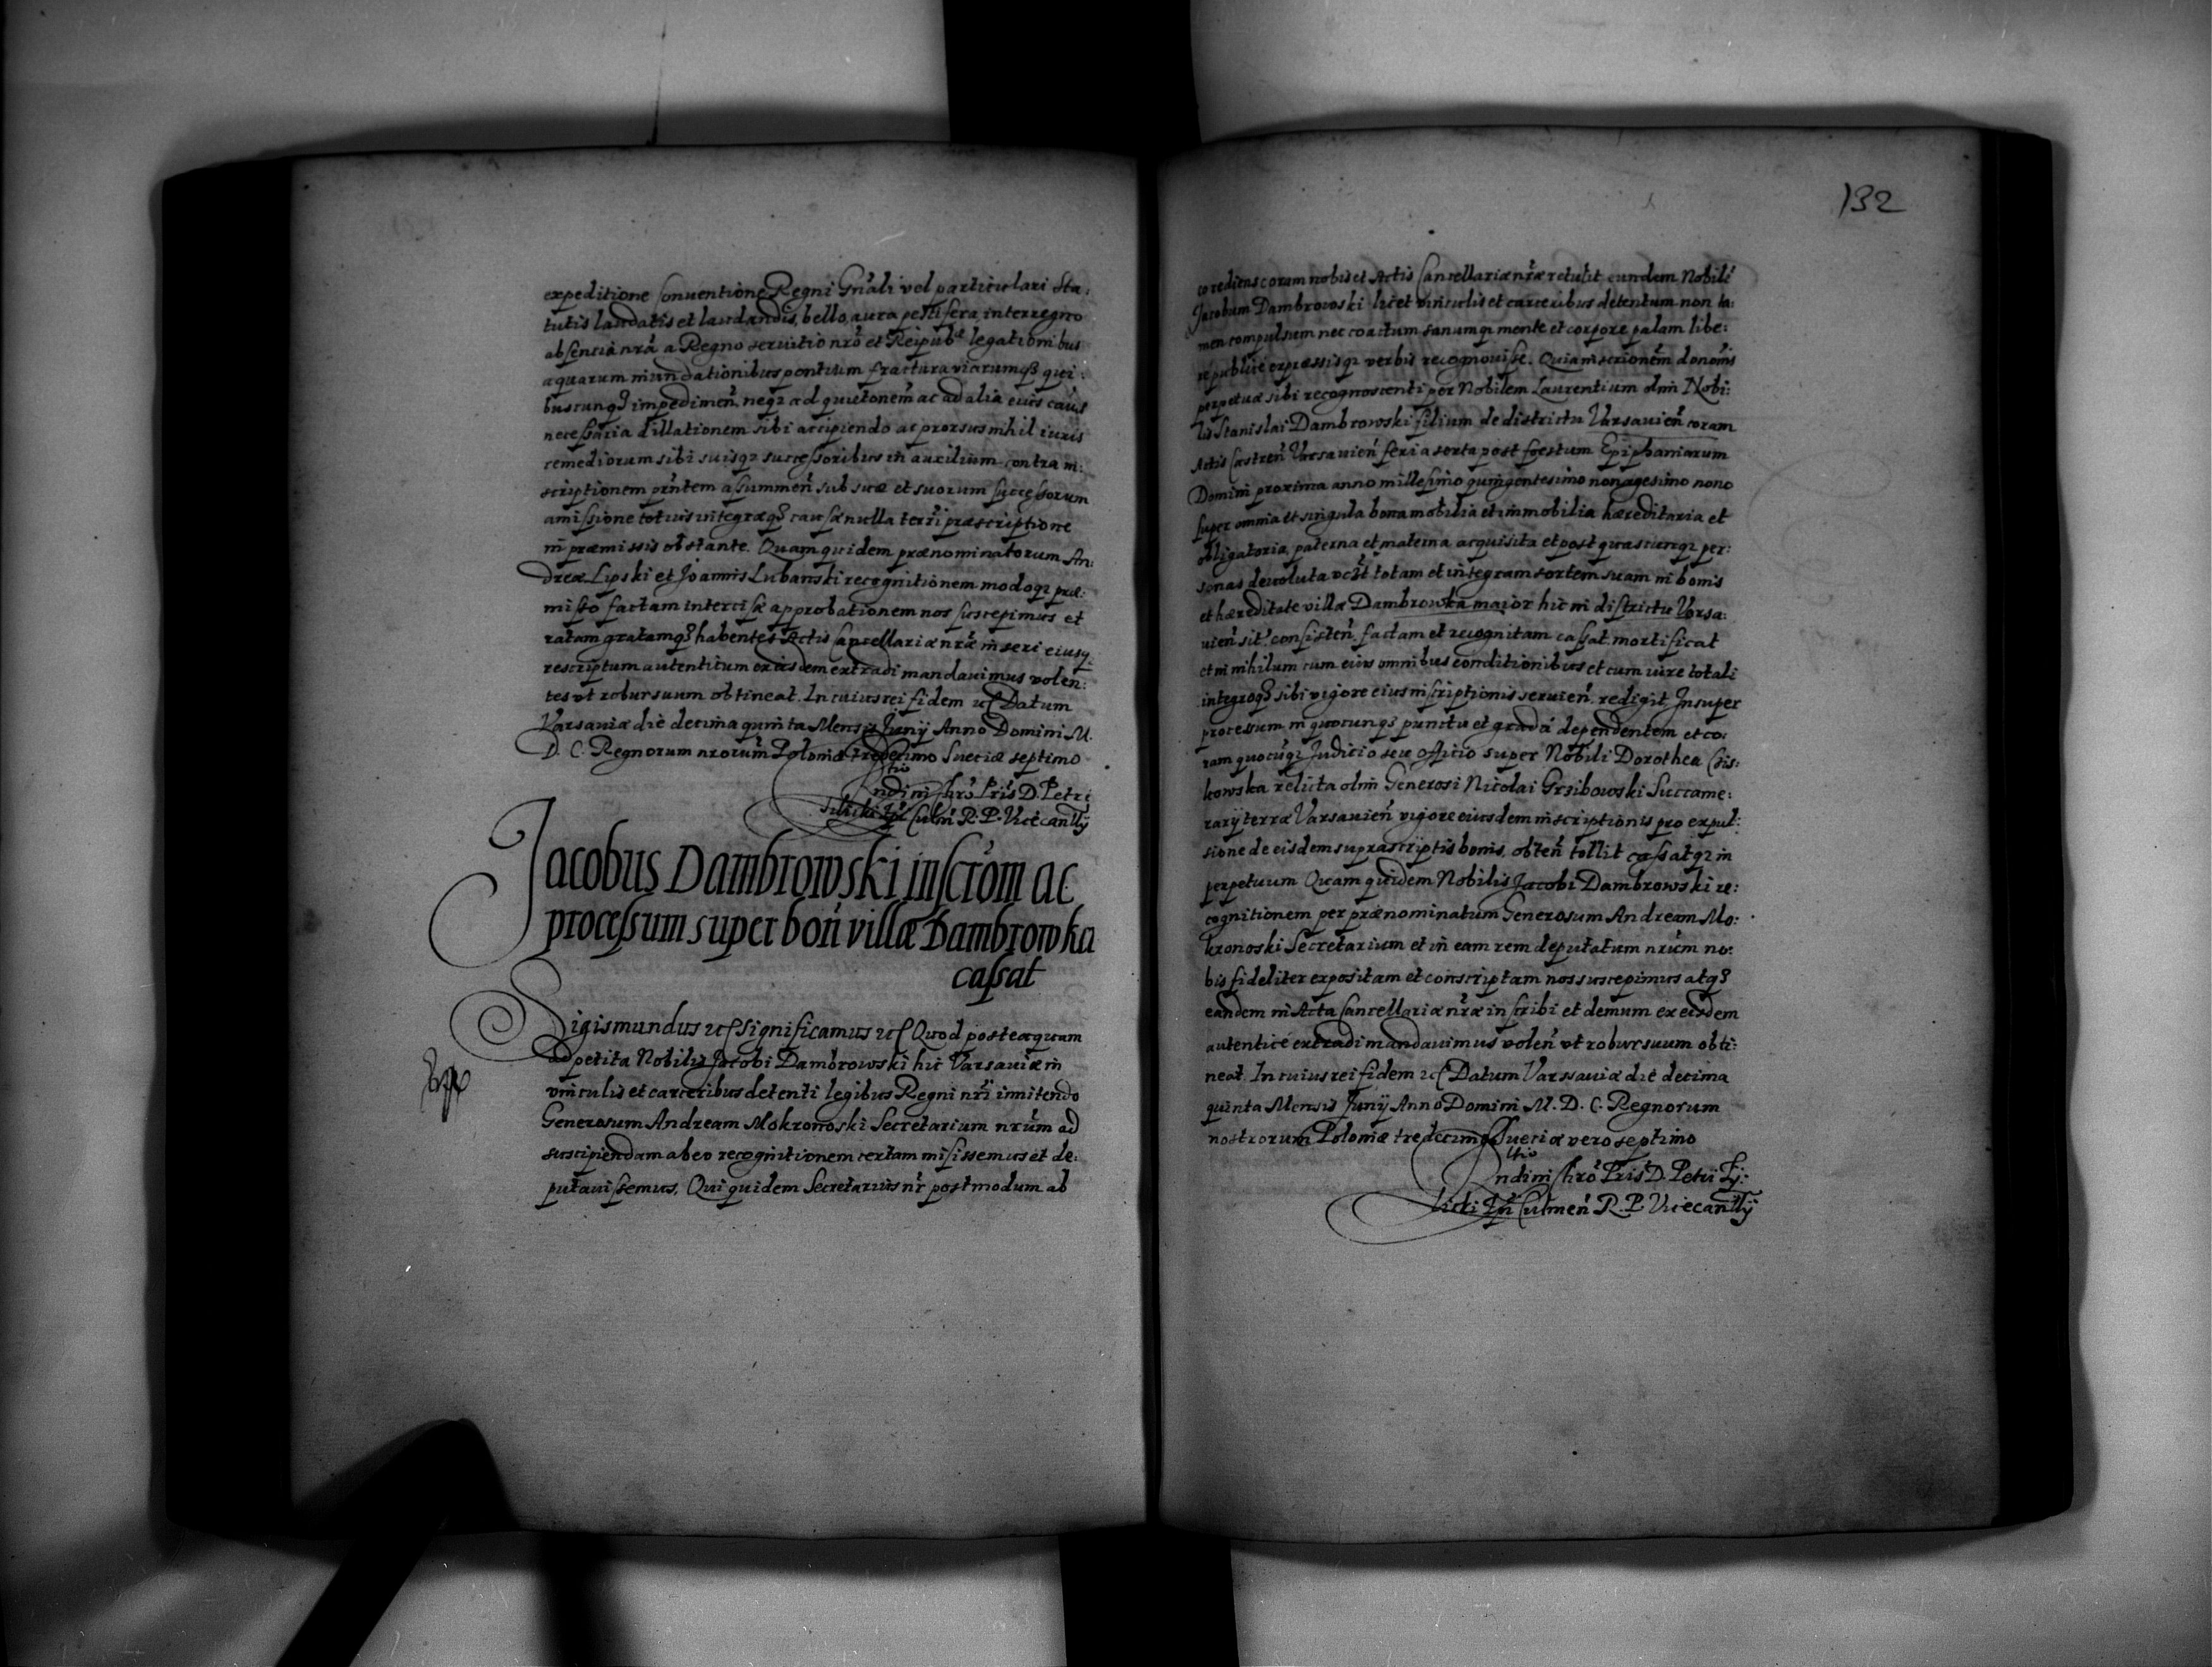 expeditione Conuentione Regni Gñali vel particulari Sta:
tutis laudatis et laudandis, bello, aura pestifera, interregno
absencia nrã a Regno seruitio nrõ et Reipub. legationibus
aquarum inundationibus pontium fractura viarumq3 qui:
buscunq3 impedimeñ neq3 ad quietoneḿ ac ad alia euis caus
necessaria dillationem sibi accipiendo ac prorsus nihil iuris
remediorum sibi suisq3 successoribus in auxilium contra in:
scriptionem prñtem assummeñ sub suæ et suorum successorum
amissione totius integræq3 causæ nulla terri præscriptione
in præmissis obstante. Quam quidem prænominatorum An:
dreæ Lipski et Joannis Lubanski recognitionem modoq3 præ:
misso factam intercisæ approbationem nos suscepimus et
ratam gratamq3 habentes Actis Cancellariæ nrãe inseri eiusq3
rescriptum autenticum exiisdem extradi mandauimus volen:
tes vt robur suum obtineat. In cuius rei fidem etc Datum
Varsauiæ die decima quinta Mensis Junij Anno Domini M.
D. C. Regnorum nrorum Poloniæ tredecimo Sueciæ septimo
R. P. Vicecanllrij
Jacobus Dambrowski inscrõm ac
processum super boñ villæ Dambrowka
cassat
Sigismundus etc Significamus etc Quod posteaquam
ad petita Nobilis Jacobi Dambrowski hic Varsauiæ in
vinculis et carceribus detenti legibus Regni nri innitendo
Generosum Andream Mokronoski Secretarium nrum ad
suscipiendam ab eo recognitionem certam misissemus et de:
putauissemus, Qui quidem Secretarius nr postmodum ab
132
eo reditus coram nobis et Actis Cancellariæ nræ retulit eundem Nobile
Jacobum Dambrowski licet vinculis et carceribus detentum non ta:
men compulsum nec coactum sanumq3 mente et corpore palam libe:
re publice expressisq3 verbis recognouisse. Quia inscrionem donoñis
perpetuæ sibi recognoscenti per Nobilem Laurentium olim Nobi:
lis Stanislai Dambrowski filium de districtu Varsauieñ coram
Actis Castreñ Varsauieñ feria sexta post foestum Epiphaniarum
Domini proxima anno millesimo quingentesimo nonagesimo nono
super omnia et singula bona mobilia et immobilia hæreditaria et
obligatoria, paterna et materna acquisita et post quascunq3 per:
sonas deuoluta vczt totam et integram sortem suam in bonis
et hæreditate villæ Dambrowka maior hic in districtu Varsa:
uieñ sit. consisteñ. factam et recognitam cassat mortificat
et in nihilum cum eius omnibus conditionibus et cum iure totali
integroq3 sibi vigore eius inscriptionis seruieñ redigit. Insuper
processum in quocunq3 punctu et gradu dependentem et co:
ram quocuq3 Judicio seu officio super Nobili Dorothea Cis:
kowska relicta olim Generosi Nicolai Grzibowski Succame:
rarij terræ Varsauieñ vigore eiusdem inscriptionis pro expul:
sione de eisdem suprascriptis bonis, obteñ tollit cassatq3 in
perpetuum Quam quidem Nobilis Jacobi Dambrowski re:
cognitionem per prænominatum Generosum Andream Mo:
kronoski Secretarium et in eam rem deputatum nrum no:
bis fideliter expositam et conscriptam nos suscepimus atq3
eandem in Acta Cancellariæ nræ inscribi et demum ex eisdem
autentice extradi mandauimus voleñ vt robur suum obti:
neat. In cuius rei fidem etc Datum Varssauiæ die decima
quinta Mensis Junij Anno Domini M. D. C. Regnorum
nostrorum Poloniæ tredecimo Sueciæ vero septimo
D. Petri Ty:
licki Culmeñ R. P. Vicecanllrij